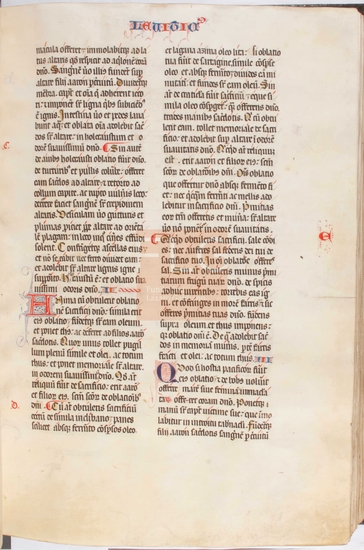 LEVITIC
macula offeret et immolabit ad la
tus altaris qd respicit ad aqilonem cora
dno. Sanguinē uo illius fundent sup
altare filii aaron p circuitu. Diuidentq
mēbra. caput et oīa q̄ adherent ieco
ri: imponent sr ligna qbus subiciēdus
ē ignis. Intestina uo et pedes laua
bunt aq̄. et oblata oīa adolebit sacer
dos sr altare in holocaustum et o
dorē suauissimū dno. Sin aut
de auibus holocausti oblatio fuit dno.
de turturibus et pullis colube: offeret
eam sacdos ad altare et retorto ad
collum capite. ac rupto uulneris loco:
decurrere faciet sanguinē sr crepidinem
altaris. Vesiculam uo gutturis et
plumas piciet ppe altare ad orienta
lem plagam: in loco in quo cineres effundi
solent. Confringetq ascellas eius
et nō secabit nec ferro diuidet eam:
et adolebit sr altare lignis igne
supposito. Holocaustū ē: et oblatio sua
uissimi odoris dno.
Anima cū obtulerit oblatio
nē sacrificii dno: simila erit
eius oblatio. fundetq sr eam oleum.
et ponet thus: ac deferet ad filios aarō
sacerdotes. Quor unus tollet pugil
lum plenū simile et olei: ac totum
thus. et ponet memoriale sr altare.
in odorem suauissimū dno. Qd aut
reliquū fuit de sacrificio. erit aarō
et filior eius. scm scor de oblatoibus
dni. Cū aut obtulerit sacrificiū
coctū de simila in clibano: panes
scilicet absq fermēto cōspsos oleo
et lagana azima oleo lita. Si oblatio
tua fuit de sartagine. simile cōspse
oleo et absq fermēto: diuides eā mi
nutatim. et fundes sr eam oleū. Sin
aut de craticula fuit sacficiū. eque si
mila oleo cōspget. quā offerens dno.
trades manibus sacerdotis. Qui cū obtu
lerit eam. tollet memoriale de sacri
ficio: et adolebit sup altare in odorē
suauitatis dno. Qcqd aut reliquū
est. erit aaron et filior eius: scm
scor de oblatoibus dni. Omnis oblatio
que offeretur dno absq fermēto fiet:
nec qcqm fermēti ac mellis ado
lebitur in sacrificio dni. Primitias
tm eor offeretis et munera: sr altare
uo nō ponent in odorē suauitatis.
Qcqd obtuleris sacrificii. sale cōdi
es: nec auferes sal federis dei tui de
sacrificio tuo. In oī oblatiōe offeres
sal. Si aut obtuleris munus pmi
tiarum frugū tuar dno. de spicis
adhuc uirentibus: torrebis eas ig
ni. et cōfringes in morē farris: et sic
offeres pmitias tuas dno. fundens
supra oleum et thus imponens:
qr oblatio dni ē. De q̄ adolebit sac
dos in memoriā munis. ptē farris
fracti et olei: ac totum thus. III.
Quod si hostia pacificor fuit
eius oblatio. et de bobus uolūit
offerre. marē siue feminā immacula
ta offeret coram dno. Ponetq
manū sr caput uictime sue: que īmo
labitur in introitu tabnacli. Fundetq
filii aaron sacerdotes sanguinē p circuitū
c.
D.
E